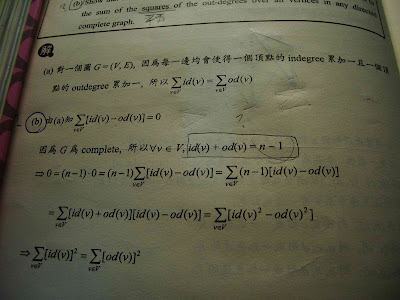 (b) Show
the sum of the squares of the out-degrees over all vertices in any directe
complete graph.
解
(a) 對一個圖 G = (V, E), 因為每一邊均會使得一個頂點的 indegree 累加一且一個頂
點的 outdegree 累加一, 所以 ∑_{v∈V} id(v) = ∑_{v∈V} od(v)
(b) 由(a)知 ∑_{v∈V} [id(v) − od(v)] = 0
?
因為 G 為 complete, 所以 ∀v ∈ V, id(v) + od(v) = n − 1
⇒ 0 = (n−1)·0 = (n−1) ∑_{v∈V} [id(v) − od(v)] = ∑_{v∈V} (n−1)[id(v) − od(v)]
= ∑_{v∈V} [id(v) + od(v)][id(v) − od(v)] = ∑_{v∈V} [id(v)² − od(v)²]
⇒ ∑_{v∈V} [id(v)]² = ∑_{v∈V} [od(v)]²